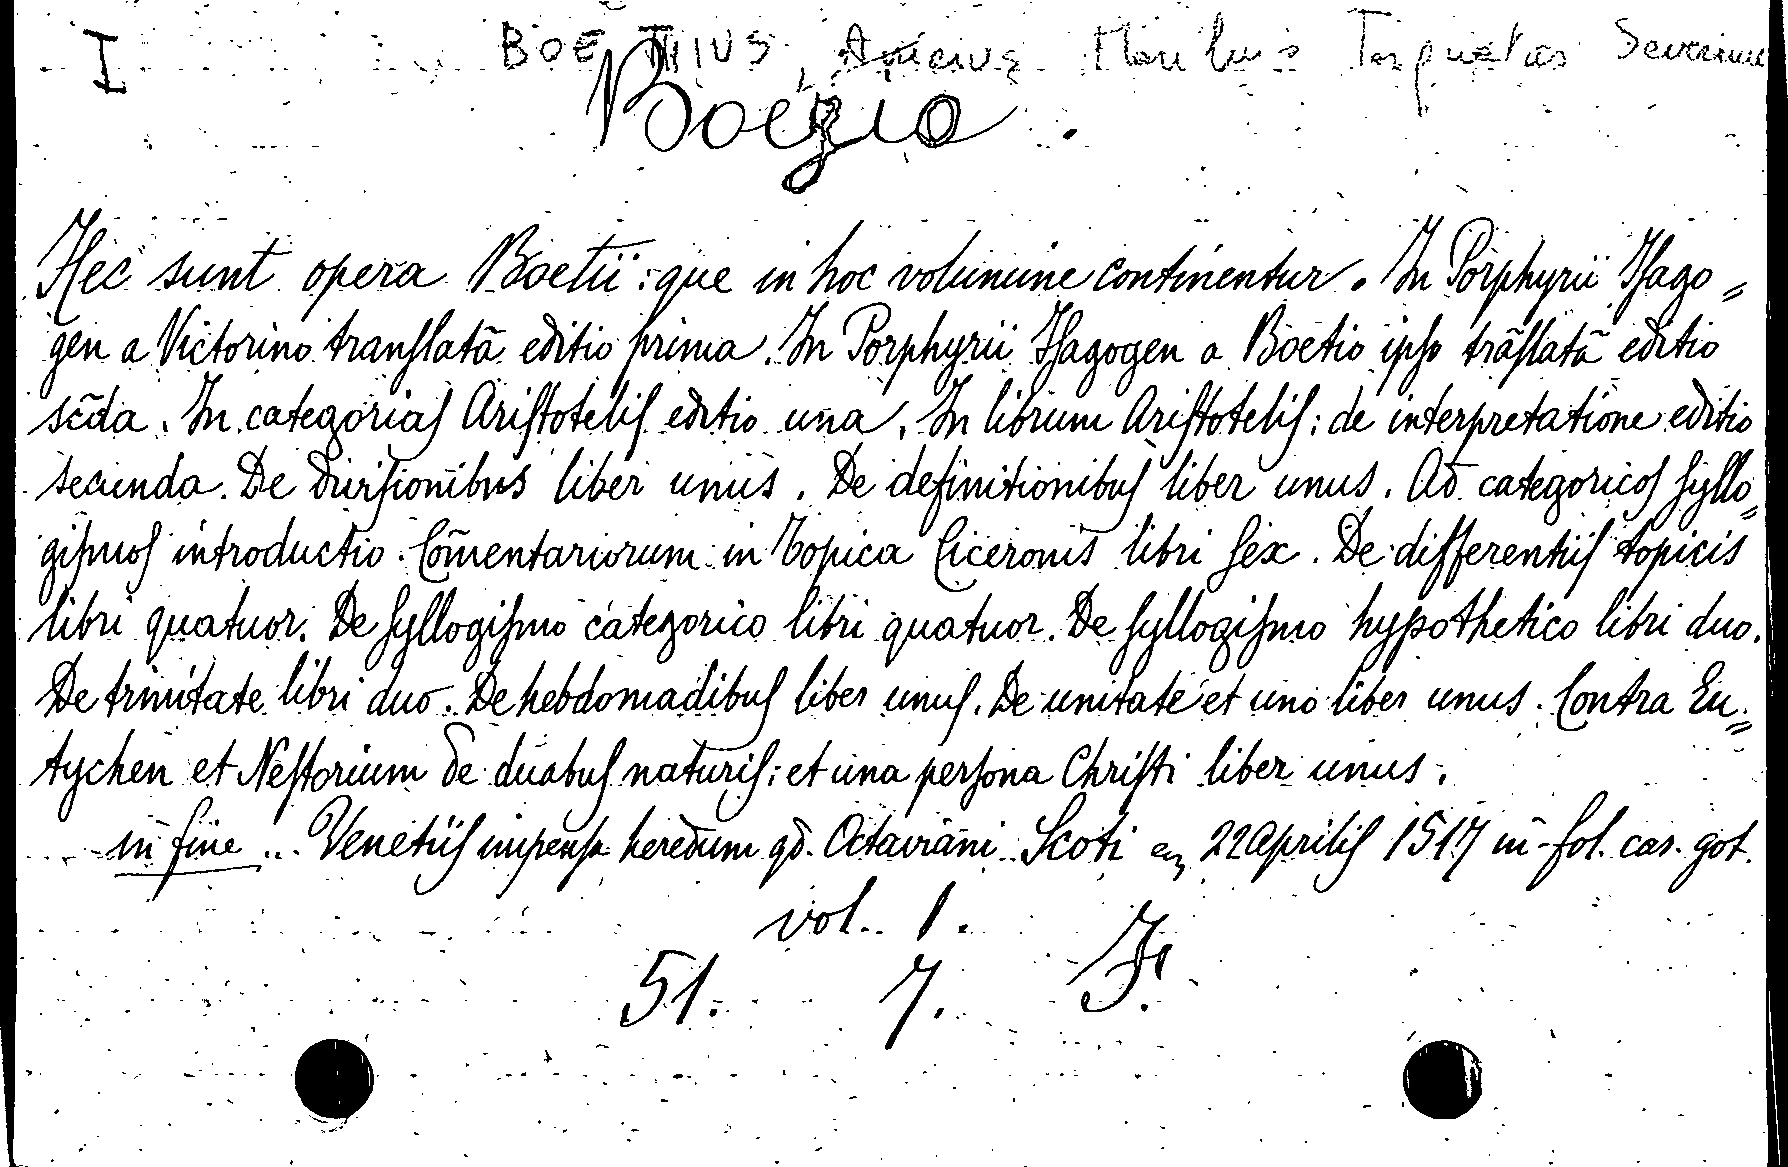 I BOETHIUS, Anicius Manlius Torquatus Severinus
Boezio.
Hec sunt opera Boetii: que in hoc volumine continentur. In Porphyrii Iſago=
gen a Victorino tranſlatā editio prima. In Porphyrii Iſagogen a Boetio ipſo trāſlatā editio
scd̄a. In categoriaſ Ariſtoteliſ editio una. In librum Ariſtoteliſ: de interpretatione editio
secunda. De diviſionibus liber unus. De definitionibuſ liber unus. Ad categoricoſ ſyllo=
giſmoſ introductio. Com̄entariorum in Topica Ciceronis libri ſex. De differentiiſ topicis
libri quatuor. De ſyllogiſmo categorico libri quatuor. De ſyllogiſmo hypothetico libri duo.
De trinitate libri duo. De hebdomadibuſ liber unuſ. De unitate et uno liber unus. Contra Eu=
tychen et Neſtorium de duabuſ naturiſ: et una perſona Chriſti liber unus.
in fine ... Venetiiſ impenſa heredum qd. Octaviani Scoti 22 Apriliſ 1517 in-fol. car. got.
vol. 1.
51. 7. F.